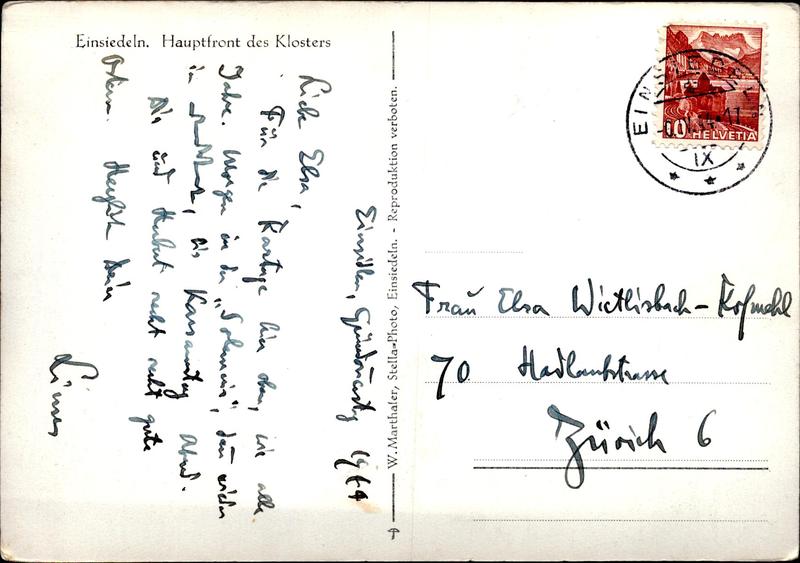 Einsiedeln. Hauptfront des Klosters
Einsiedeln, Gründonnerstag 1944
Liebe Elsa,
Für die Kartage hier oben, wie alle
Jahre. Morgen in der "Solemnis", dann wieder
in , bis Karsamstag Abend.
Dir und Herbert recht recht gute
Ostern. Herzlich Dein
W. Marthaler, Stella-Photo, Einsiedeln. - Reproduktion verboten.
EINSIEDELN
IX
HELVETIA
Frau Elsa Wietlisbach-Kofmehl
70 Hadlaubstrasse
Zürich 6